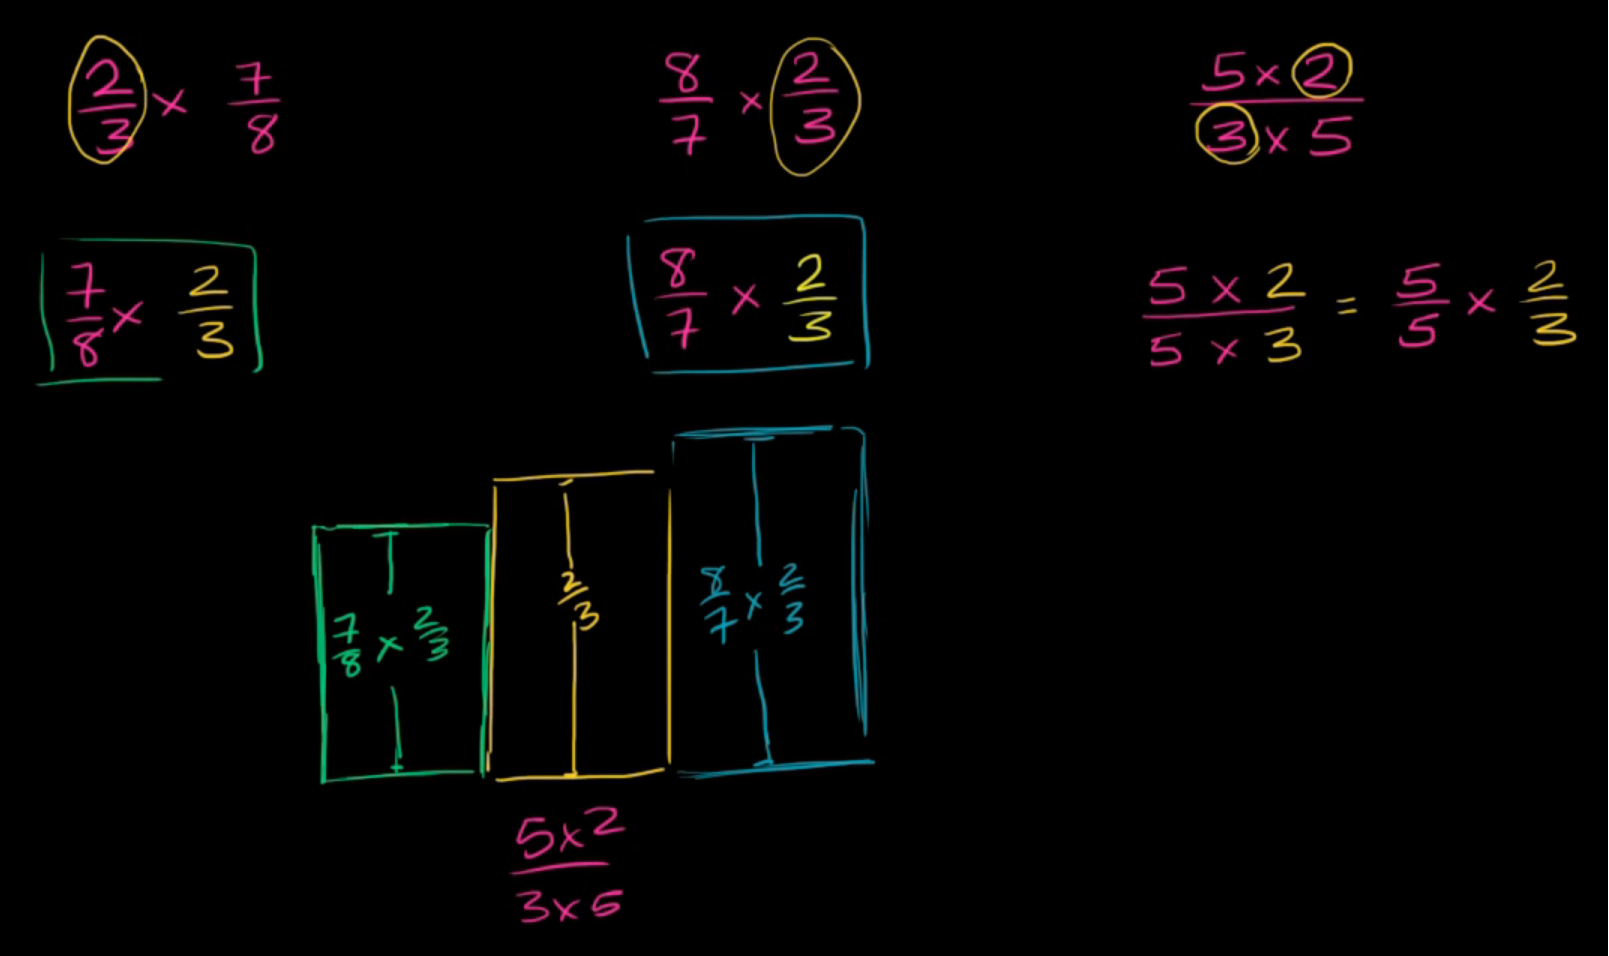 2/3 × 7/8
8/7 × 2/3
5 × 2 / 3 × 5
7/8 × 2/3
8/7 × 2/3
5 × 2 / 5 × 3 = 5/5 × 2/3
7/8 × 2/3
2/3
8/7 × 2/3
5 × 2 / 3 × 5